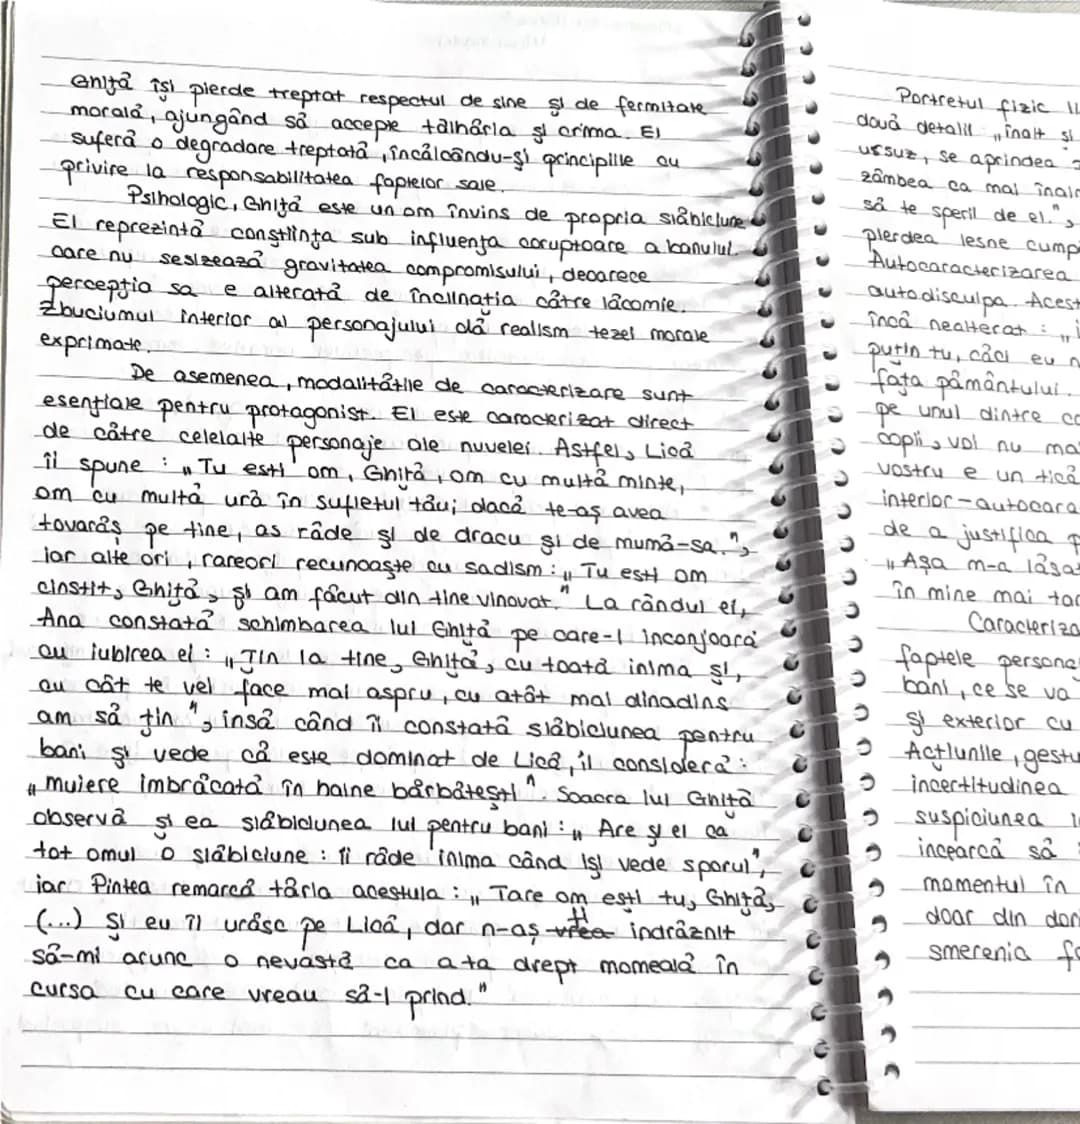 Ghiță își pierde treptat respectul de sine și de fermitate
morală, ajungând să accepte tâlhăria și crima. El
suferă o degradare treptată, încălcându-și principiile cu
privire la responsabilitatea faptelor sale.
Psihologic, Ghiță este un om învins de propria slăbiciune.
El reprezintă conștiința sub influența coruptoare a banului.
care nu sesizează gravitatea compromisului, deoarece
percepția sa e alterată de înclinația către lăcomie.
Zbuciumul interior al personajului dă realism tezei morale
exprimate.
De asemenea, modalitățile de caracterizare sunt
esențiale pentru protagonist. El este caracterizat direct
de către celelalte personaje ale nuvelei. Astfel, Lică
îi spune : „Tu ești om, Ghiță, om cu multă minte,
om cu multă ură în sufletul tău; dacă te-aș avea
tovarăș pe tine, as râde și de dracu și de mumă-sa.",
iar alte ori, rareori recunoaște cu sadism: „Tu ești om
cinstit, Ghiță, și am făcut din tine vinovat." La rândul ei,
Ana constată schimbarea lui Ghiță pe care-l inconjoară
cu iubirea ei : „Țin la tine, Ghiță, cu toată inima și,
cu cât te vei face mai aspru, cu atât mai dinadins
am să țin", însă când îi constată slăbiciunea pentru
bani și vede că este dominat de Lică, îl consideră:
„muiere îmbrăcată în haine bărbătești". Soacra lui Ghiță
observă și ea slăbiciunea lui pentru bani : „Are și el ca
tot omul o slăbiciune : îi râde inima când își vede sporul",
iar Pintea remarcă tăria acestuia : „Tare om ești tu, Ghiță,
(...) Și eu îl urăsc pe Lică, dar n-aș fi îndrăznit
să-mi arunc o nevastă ca a ta drept momeală în
cursa cu care vreau să-l prind."
Portretul fizic
două detalii „înalt și
ursuz, se aprindea
zâmbea ca mai înain
să te sperii de el.",
pierdea lesne cump
Autocaracterizarea
autodisculpa. Acest
încă nealterat : „
puțin tu, căci eu n
fața pământului.
pe unul dintre co
copii, voi nu ma
vostru e un tică
interior-autocara
de a justifica
„Așa m-a lăsat
în mine mai tar
Caracteriza
faptele persona
bani, ce se va
și exterior cu
Acțiunile, gestu
incertitudinea
suspiciunea
incearcă să
momentul în
doar din dor
smerenia fa